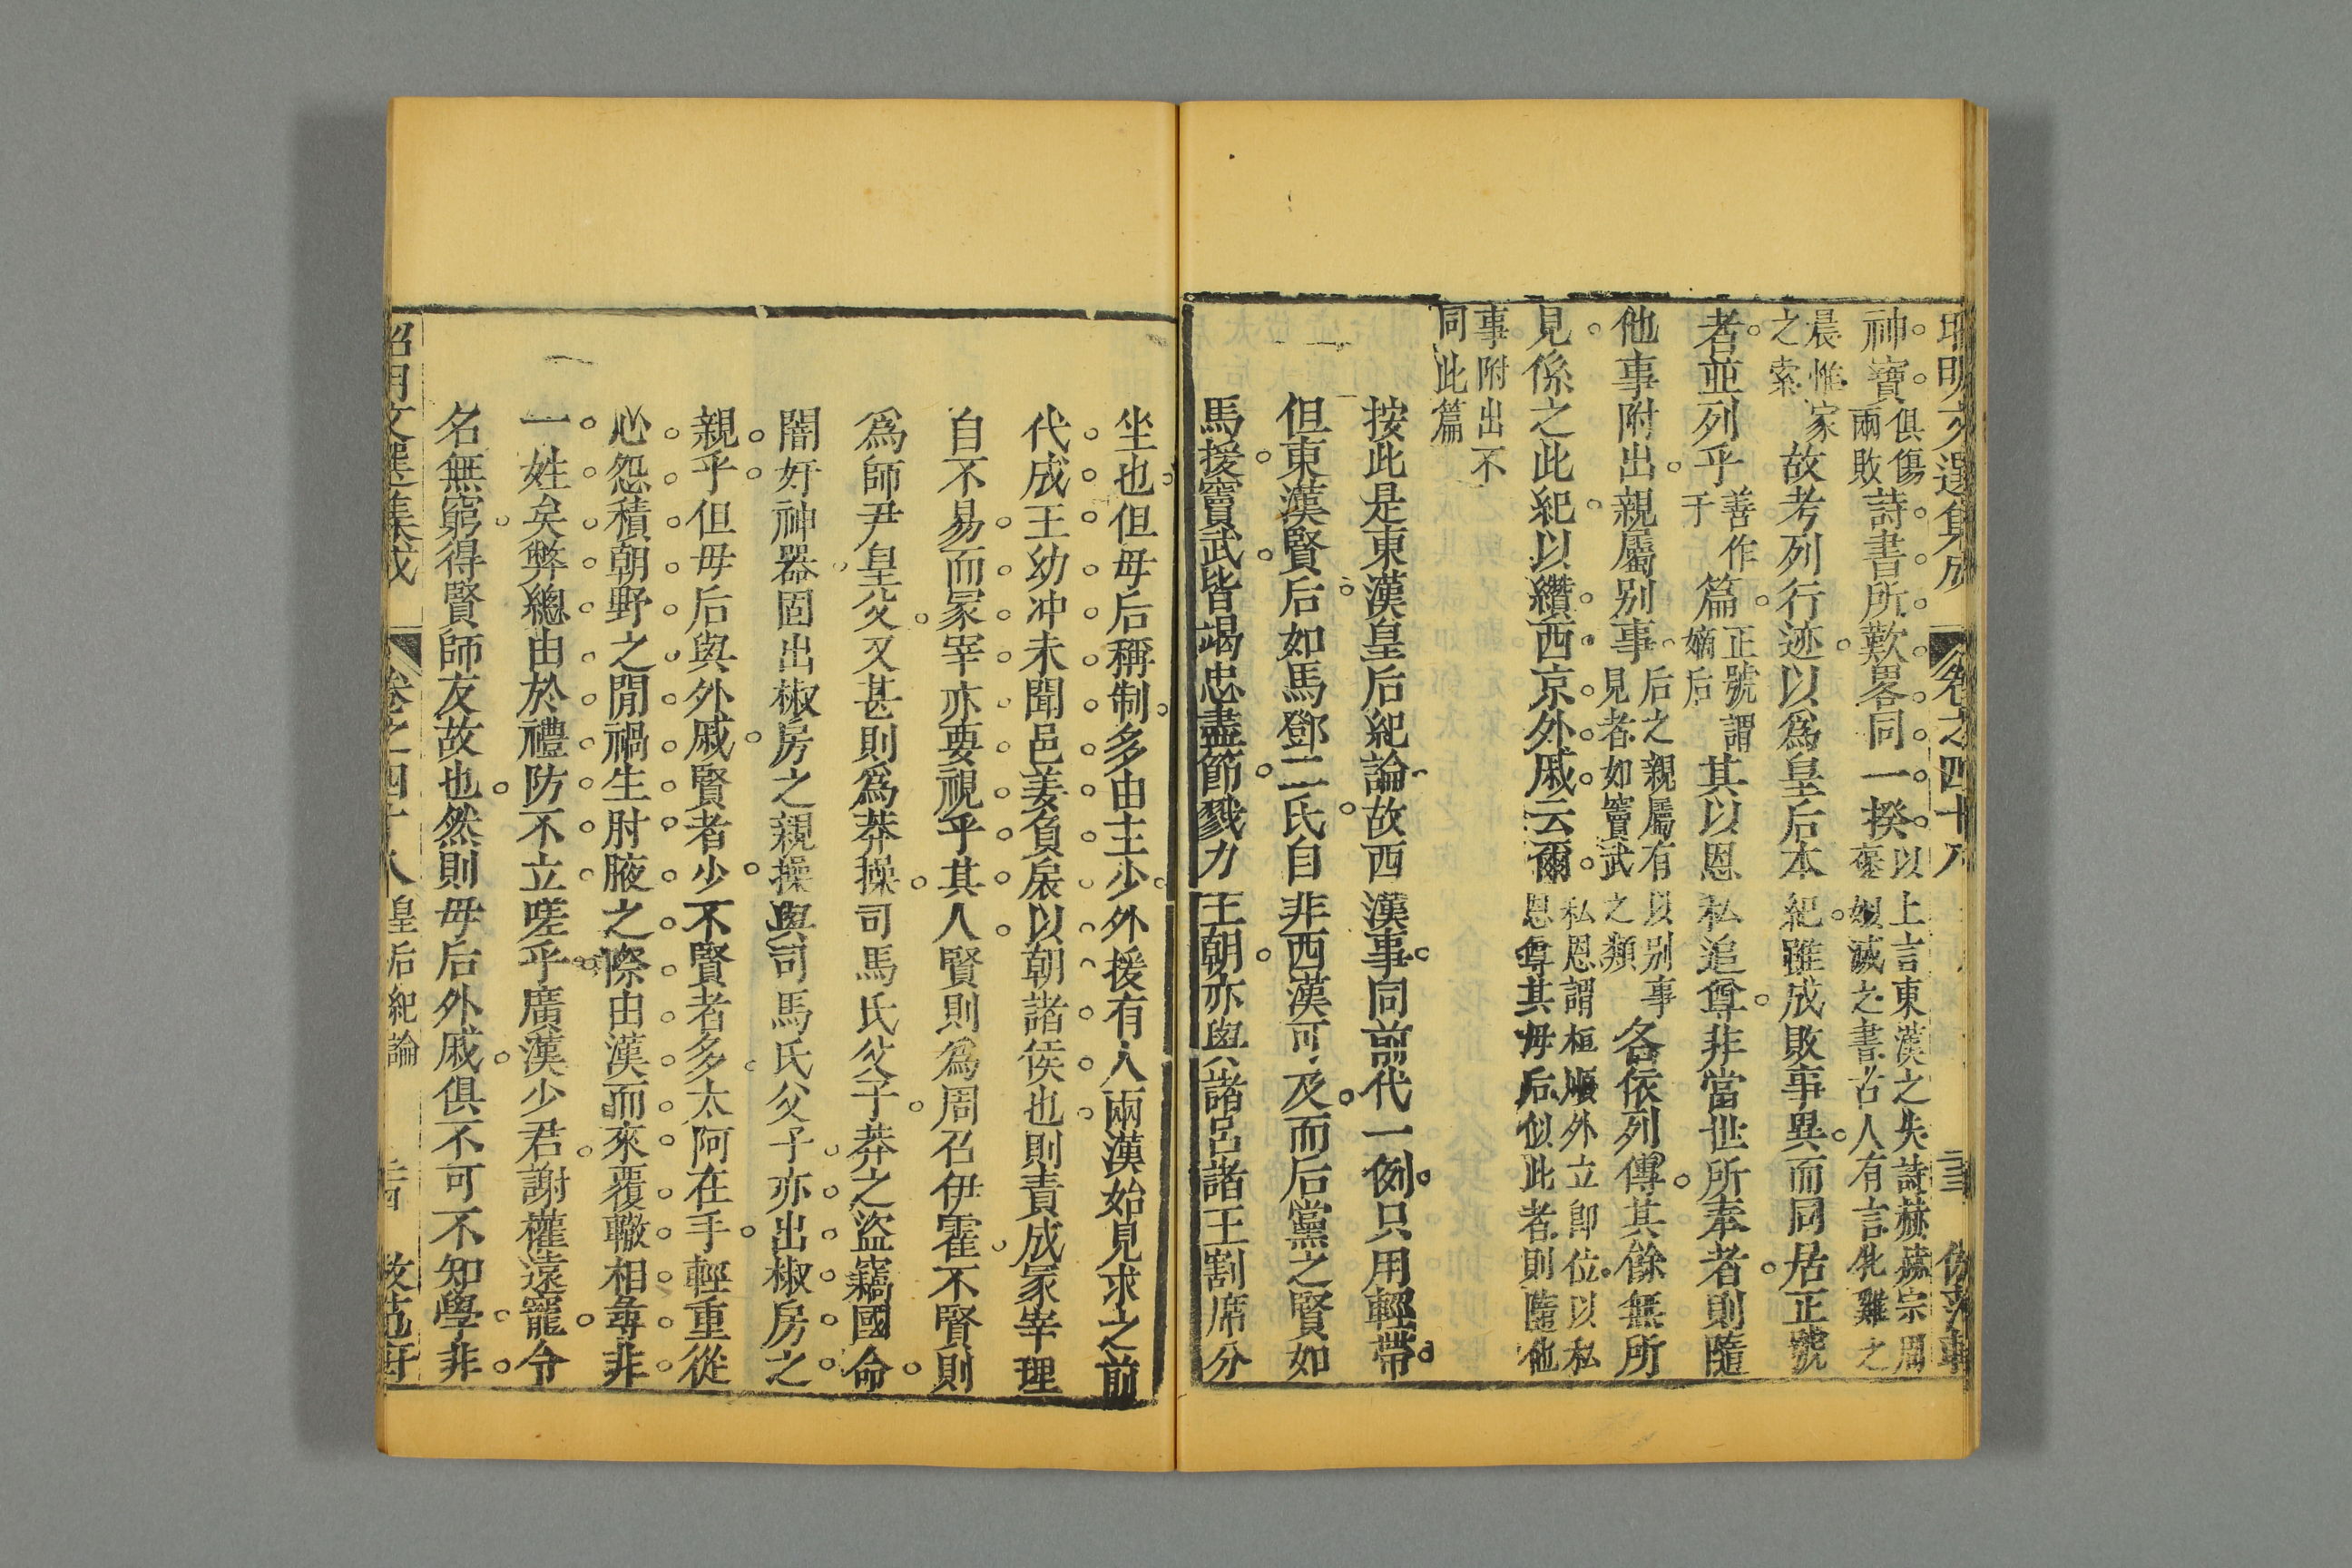 昭明文選集成 卷之四十八
神寶俱傷兩敗詩書所歎畧同一揆以上言東漢之失詩赫赫宗周褒姒滅之書古人有言牝雞之
晨惟家之索故考列行迹以爲皇后本紀雖成敗事異而同居正號
者並列乎善作于篇正號謂嫡后其以恩私追尊非當世所奉者則隨
他事附出親屬别事后之親屬有以别事見者如竇武之類各依列傳其餘無所
見係之此紀以纘西京外戚云爾私恩謂桓順外立卽位以私恩尊其母后似此者則隨他
事附出不同此篇
按此是東漢皇后紀論故西漢事同前代一例只用輕帶
但東漢賢后如馬鄧二氏自非西漢可及而后黨之賢如
馬援竇武皆竭忠盡節戮力王朝亦與諸呂諸王割席分
坐也但母后稱制多由主少外援有人兩漢始見求之前
代成王幼冲未聞邑姜負扆以朝諸侯也則責成冢宰理
自不易而冢宰亦要視乎其人賢則爲周召伊霍不賢則
爲師尹皇父又甚則爲莽操司馬氏父子莽之盜竊國命
闇奸神器固出椒房之親操與司馬氏父子亦出椒房之
親乎但母后與外戚賢者少不賢者多太阿在手輕重從
心怨積朝野之閒禍生肘腋之際由漢而來覆轍相尋非
一姓矣弊總由於禮防不立嗟乎廣漢少君謝權遠寵令
名無窮得賢師友故也然則母后外戚俱不可不知學非
昭明文選集成 卷之四十八 皇后紀論